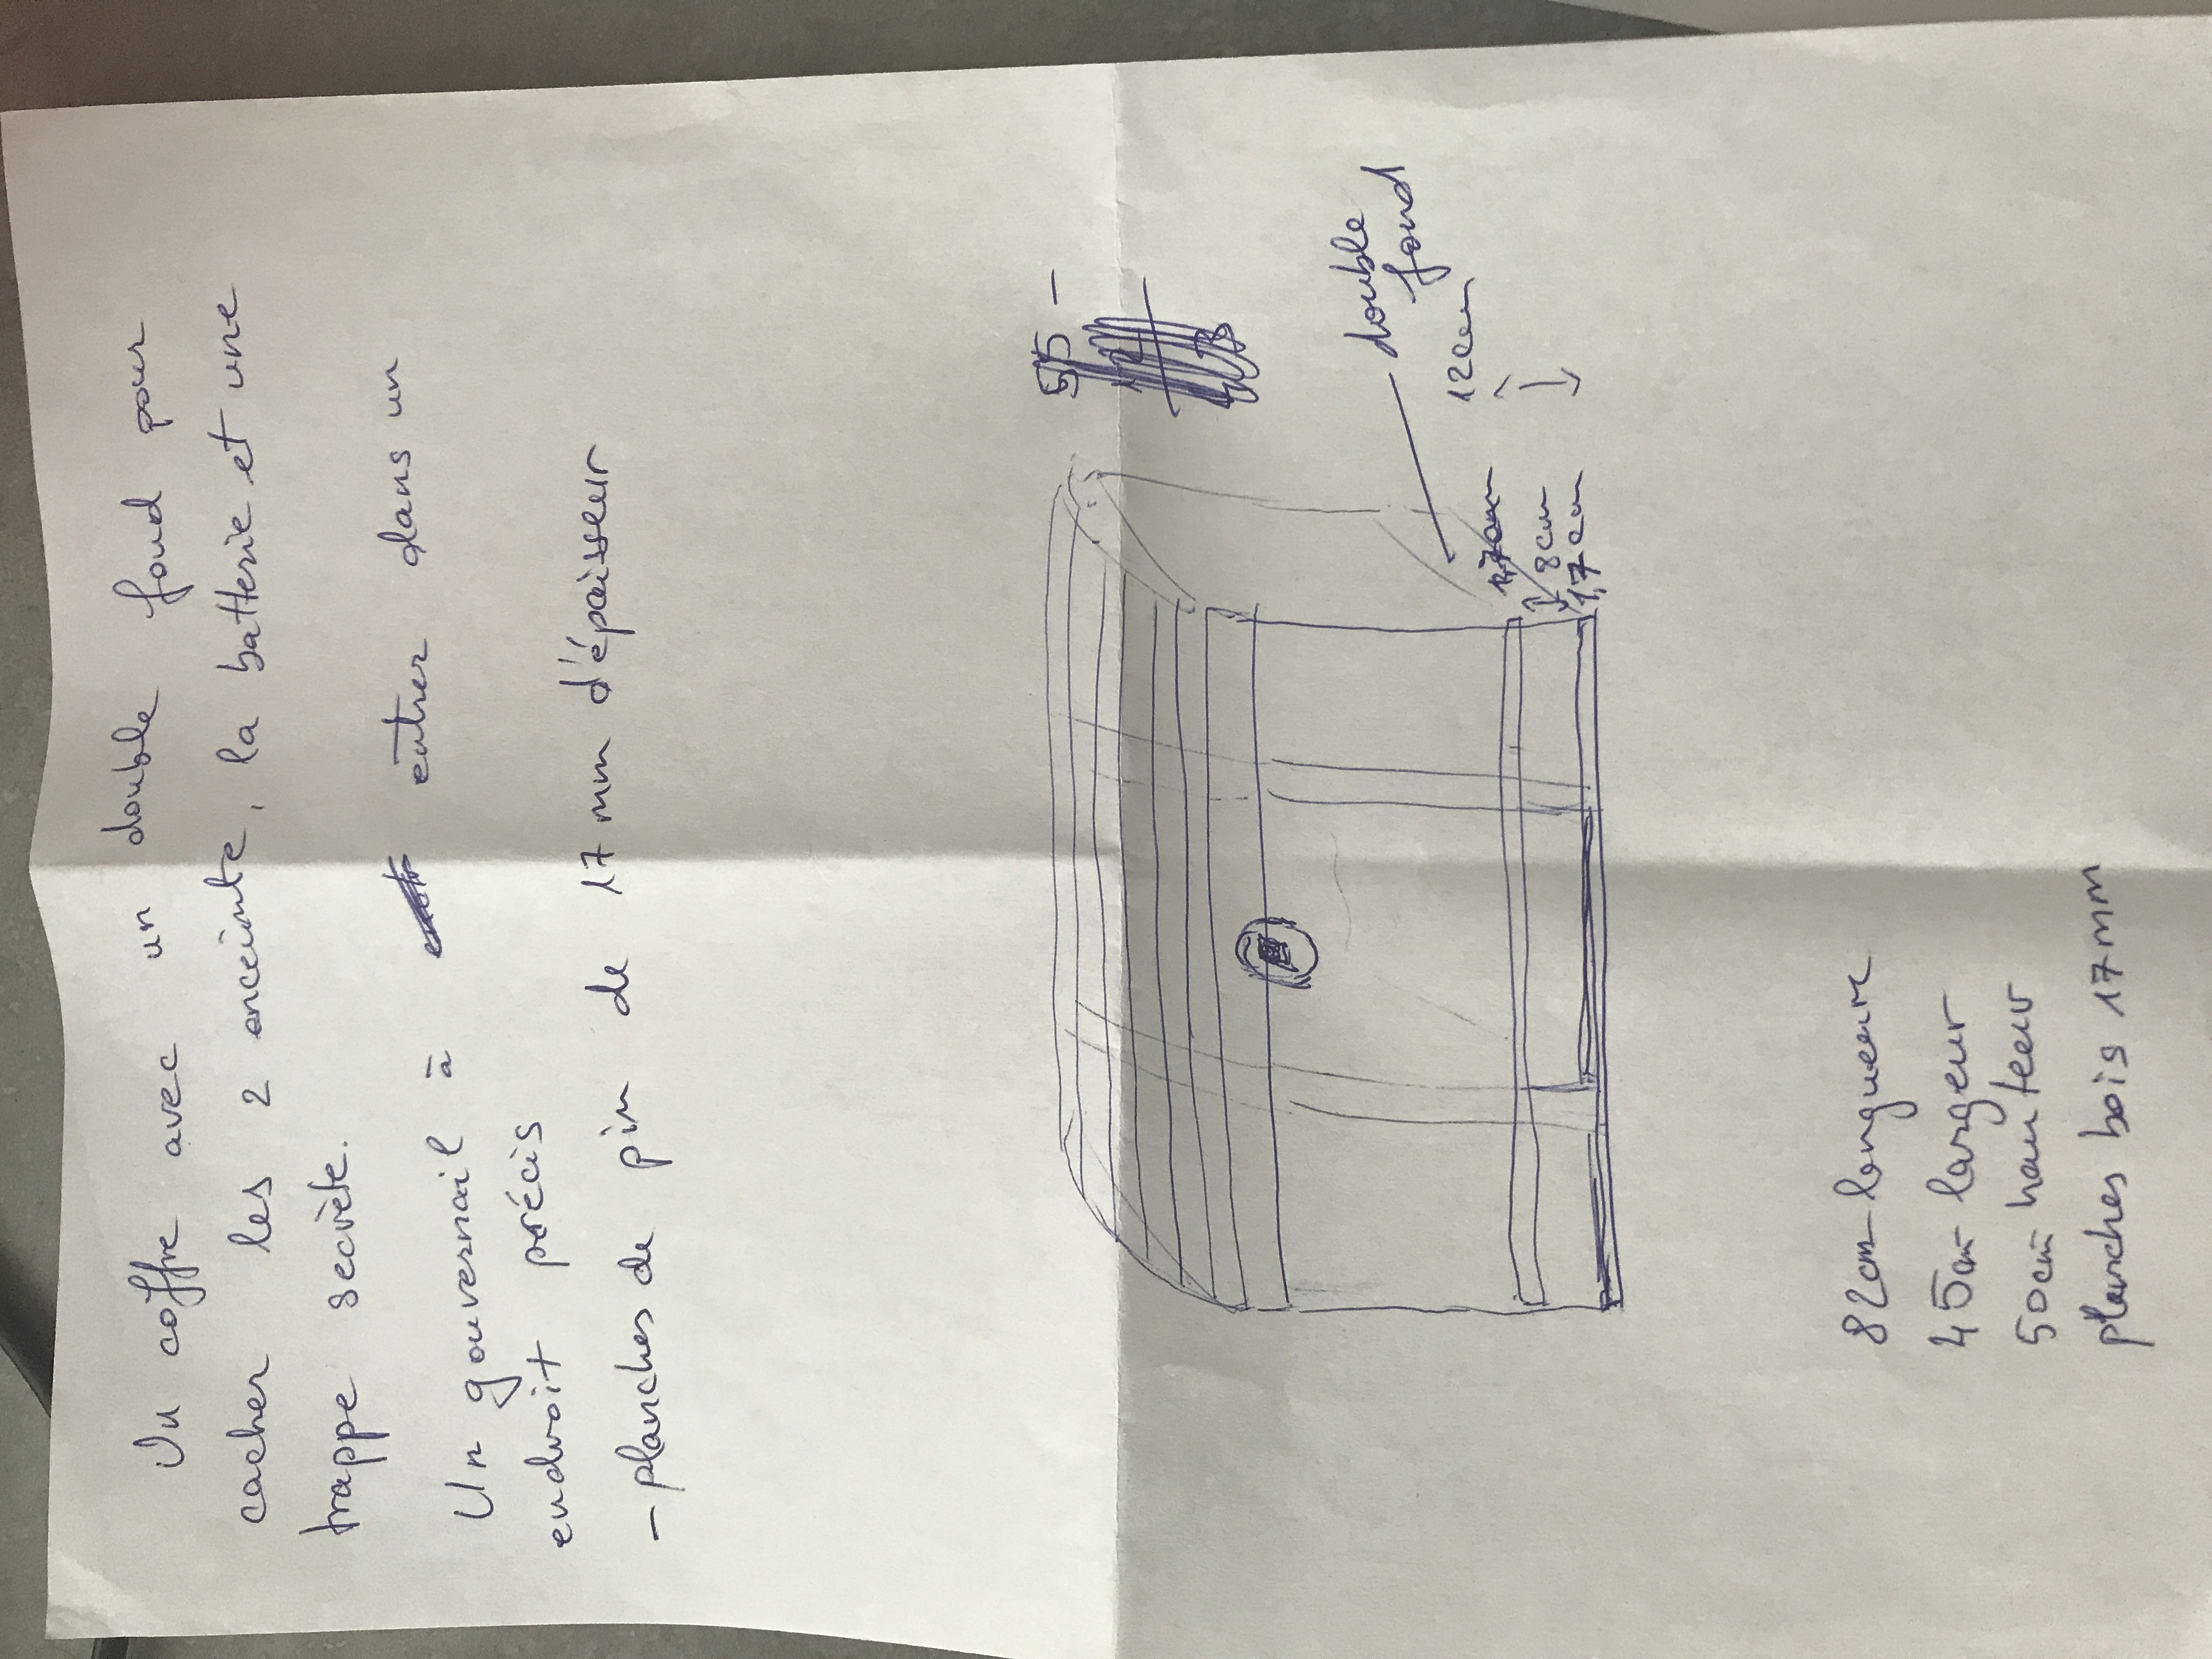 Un coffre avec un double fond pour
cacher les 2 enceinte, la batterie et une
trappe secrète.
Un gouvernail à entrer dans un
endroit précis
- planches de pin de 17 mm d'épaisseur
55 -
double
fond
12cm
1,7cm
8cm
1,7cm
82cm longueure
45cm largeur
50cm hauteur
planches bois 17mm